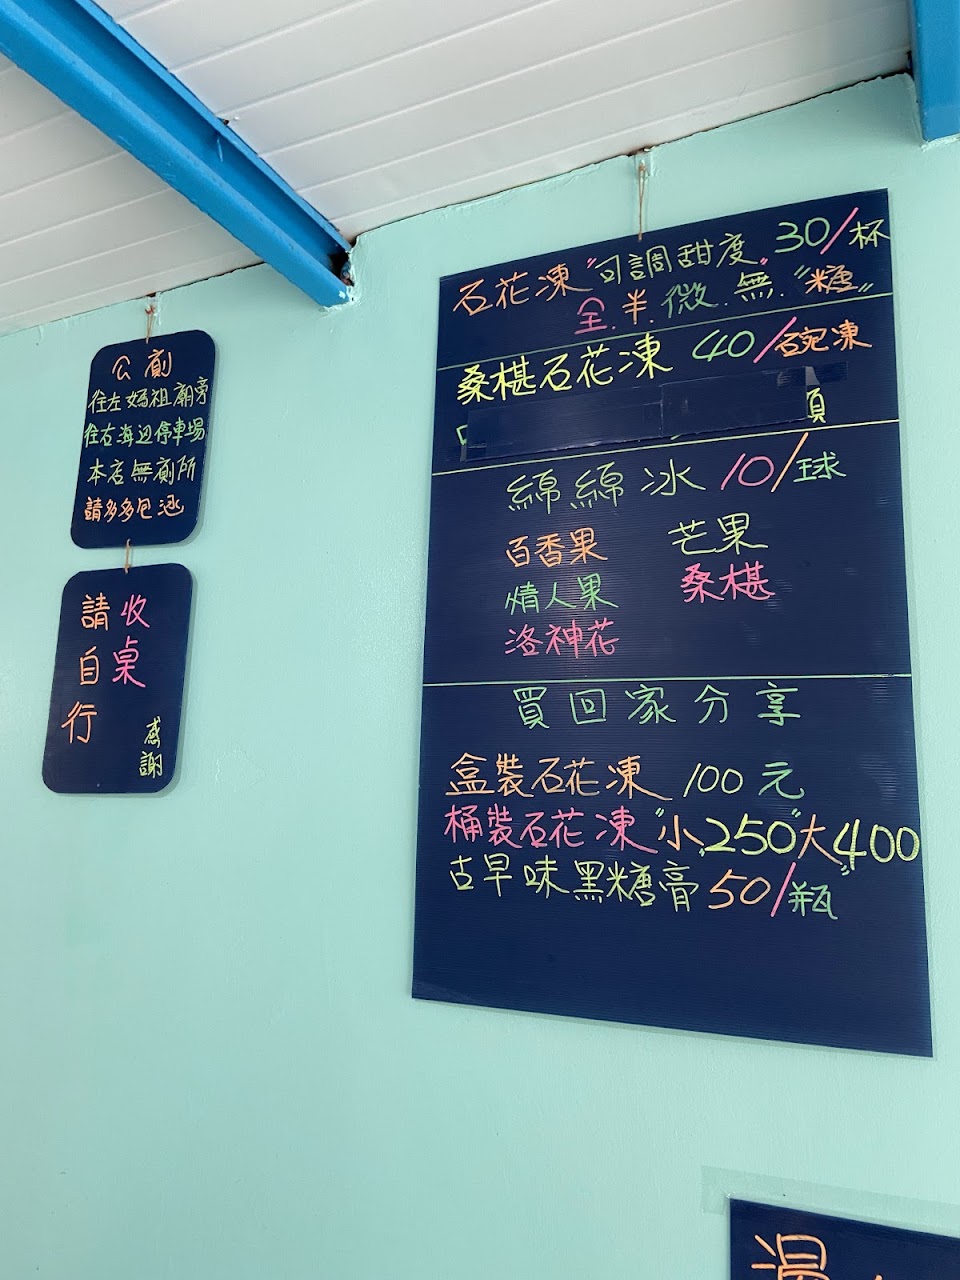 公廁
往左媽祖廟旁
往右海边停車場
本店無廁所
請多多包涵
請自行
收桌
感謝
石花凍"可調甜度" 30/杯
全.半.微.無."糖"
桑椹石花凍 40/碗凍
綿綿冰 10/球
百香果 芒果
情人果 桑椹
洛神花
買回家分享
盒裝石花凍 100元
桶裝石花凍"小"250"大"400
古早味黑糖膏50/瓶